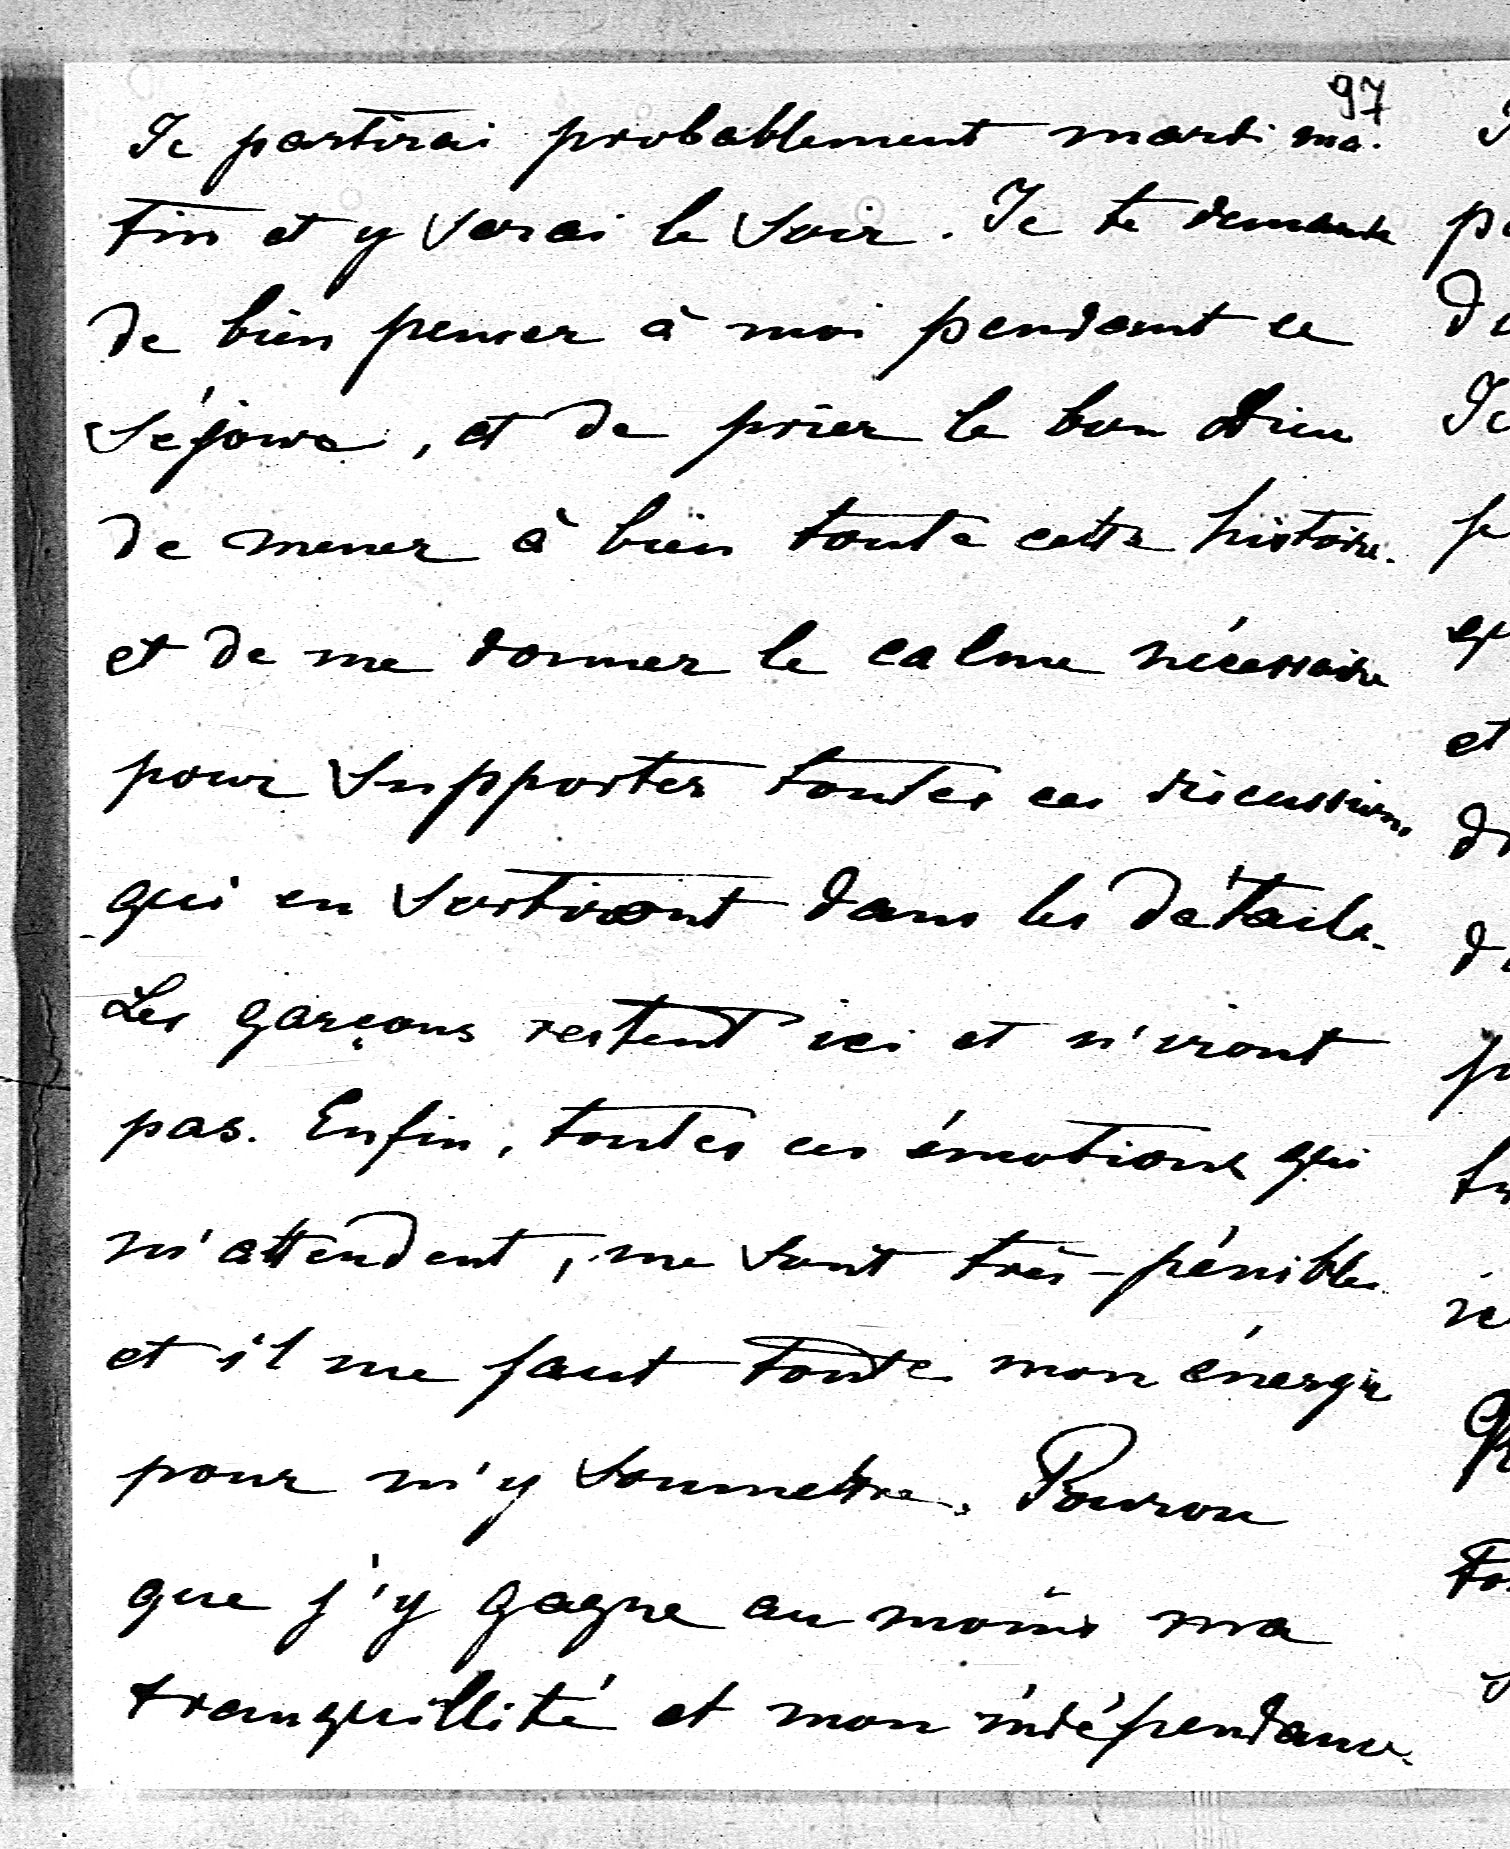 97
Je partirai probablement mardi ma-
tin et y serai le soir. Je te demande
de bien penser à moi pendant ce
séjour, et de prier le bon Dieu
de mener à bien toute cette histoire.
et de me donner le calme nécessaire
pour supporter toutes ces discussions
qui en sortiront dans les détails.
Les garçons restent ici et n'iront
pas. Enfin, toutes ces émotions qui
m'attendent, me sont très-pénibles
et il me faut toute mon énergie
pour m'y soumettre. Pourvu
que j'y gagne au moins ma
tranquillité et mon indépendance.